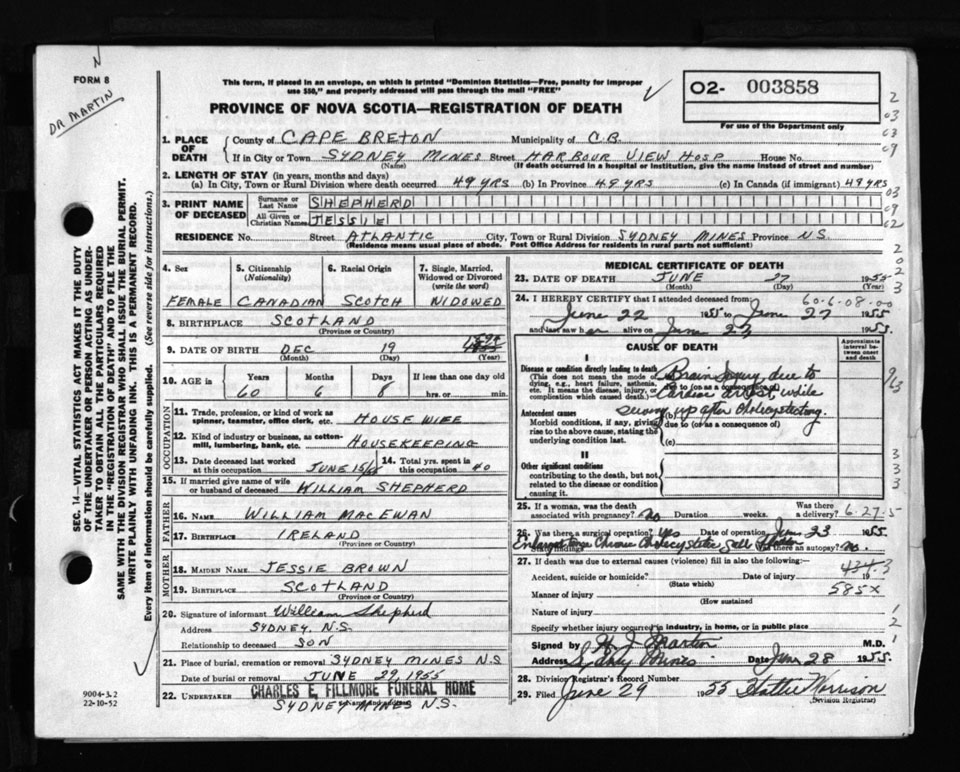 N
FORM 8
DR MARTIN
This form, if placed in an envelope, on which is printed "Dominion Statistics—Free, penalty for improper
use $50," and properly addressed will pass through the mail "FREE"
✓
O2- 003858
For use of the Department only
PROVINCE OF NOVA SCOTIA—REGISTRATION OF DEATH
2
03
03
09
03
09
02
2
0
2
3
1. PLACE OF DEATH County of CAPE BRETON Municipality of C.B.
If in City or Town SYDNEY MINES Street HARBOUR VIEW HOSP House No.
(Name) (If death occurred in a hospital or institution, give the name instead of street and number)
2. LENGTH OF STAY (in years, months and days)
(a) In City, Town or Rural Division where death occurred 49 YRS (b) In Province 49 YRS (c) In Canada (if immigrant) 49 YRS
3. PRINT NAME OF DECEASED Surname or Last Name SHEPHERD
All Given or Christian Names JESSIE
RESIDENCE No. Street ATLANTIC City, Town or Rural Division SYDNEY MINES Province N.S.
(Residence means usual place of abode. Post Office Address for residents in rural parts not sufficient)
SEC. 14—VITAL STATISTICS ACT MAKES IT THE DUTY
OF THE UNDERTAKER OR PERSON ACTING AS UNDER-
TAKER TO OBTAIN ALL THE PARTICULARS REQUIRED
IN THE "REGISTRATION OF DEATH" AND TO FILE THE
SAME WITH THE DIVISION REGISTRAR WHO SHALL ISSUE THE BURIAL PERMIT.
WRITE PLAINLY WITH UNFADING INK. THIS IS A PERMANENT RECORD.
Every item of information should be carefully supplied. (See reverse side for instructions.)
4. Sex FEMALE
5. Citizenship (Nationality) CANADIAN
6. Racial Origin SCOTCH
7. Single, Married, Widowed or Divorced (write the word) WIDOWED
8. BIRTHPLACE SCOTLAND
(Province or Country)
9. DATE OF BIRTH DEC 19
(Month) (Day) (Year)
10. AGE in Years Months Days If less than one day old
60 6 8 hrs. or min.
OCCUPATION
11. Trade, profession, or kind of work as
spinner, teamster, office clerk, etc. HOUSE WIFE
12. Kind of industry or business, as cotton-
mill, lumbering, bank, etc. HOUSEKEEPING
13. Date deceased last worked
at this occupation JUNE 15/
14. Total yrs. spent in
this occupation 40
15. If married give name of wife
or husband of deceased WILLIAM SHEPHERD
FATHER
16. NAME WILLIAM MACEWAN
17. BIRTHPLACE IRELAND
(Province or Country)
MOTHER
18. MAIDEN NAME JESSIE BROWN
19. BIRTHPLACE SCOTLAND
(Province or Country)
20. Signature of informant William Shepherd
Address SYDNEY, N.S.
Relationship to deceased SON
21. Place of burial, cremation or removal SYDNEY MINES N.S
Date of burial or removal JUNE 29, 1955
22. UNDERTAKER CHARLES E. FILLMORE FUNERAL HOME
(Name and address)
SYDNEY MINES N.S.
9004-3.2
22-10-52
MEDICAL CERTIFICATE OF DEATH
23. DATE OF DEATH JUNE 27 1955
(Month) (Day)
24. I HEREBY CERTIFY that I attended deceased from: 60-6-08-00
June 22 1955 to June 27 1955
and last saw her alive on June 27 1955.
CAUSE OF DEATH
Approximate interval between onset and death
I
Disease or condition directly leading to death
(This does not mean the mode of
dying, e.g., heart failure, asthenia,
etc. It means the disease, injury, or
complication which caused death.)
(a) Brain injury due to
due to (or as a consequence of)
Cardiac arrest while
Antecedent causes
Morbid conditions, if any, giving
rise to the above cause, stating the
underlying condition last.
(b) sewing up after cholecystectomy.
due to (or as a consequence of)
(c)
II
Other significant conditions
contributing to death, but not
related to the disease or condition
causing it.
9/63
3
3
3
25. If a woman, was the death
associated with pregnancy? no Duration weeks. Was there
a delivery? 6-27-5
26. Was there a surgical operation? yes Date of operation June 23 1955
State findings Chronic Cholecystitis Gall Was there an autopsy? no.
27. If death was due to external causes (violence) fill in also the following:— 434.3
Accident, suicide or homicide? Date of injury 19
(State which)
585X
Manner of injury
(How sustained
Nature of injury
Specify whether injury occurred in industry, in home, or in public place
1
2
1
Signed by H J Martin M.D.
Address Sydney Mines Date June 28 1955.
28. Division Registrar's Record Number
29. Filed June 29 1955 Hattie Morrison
(Division Registrar)